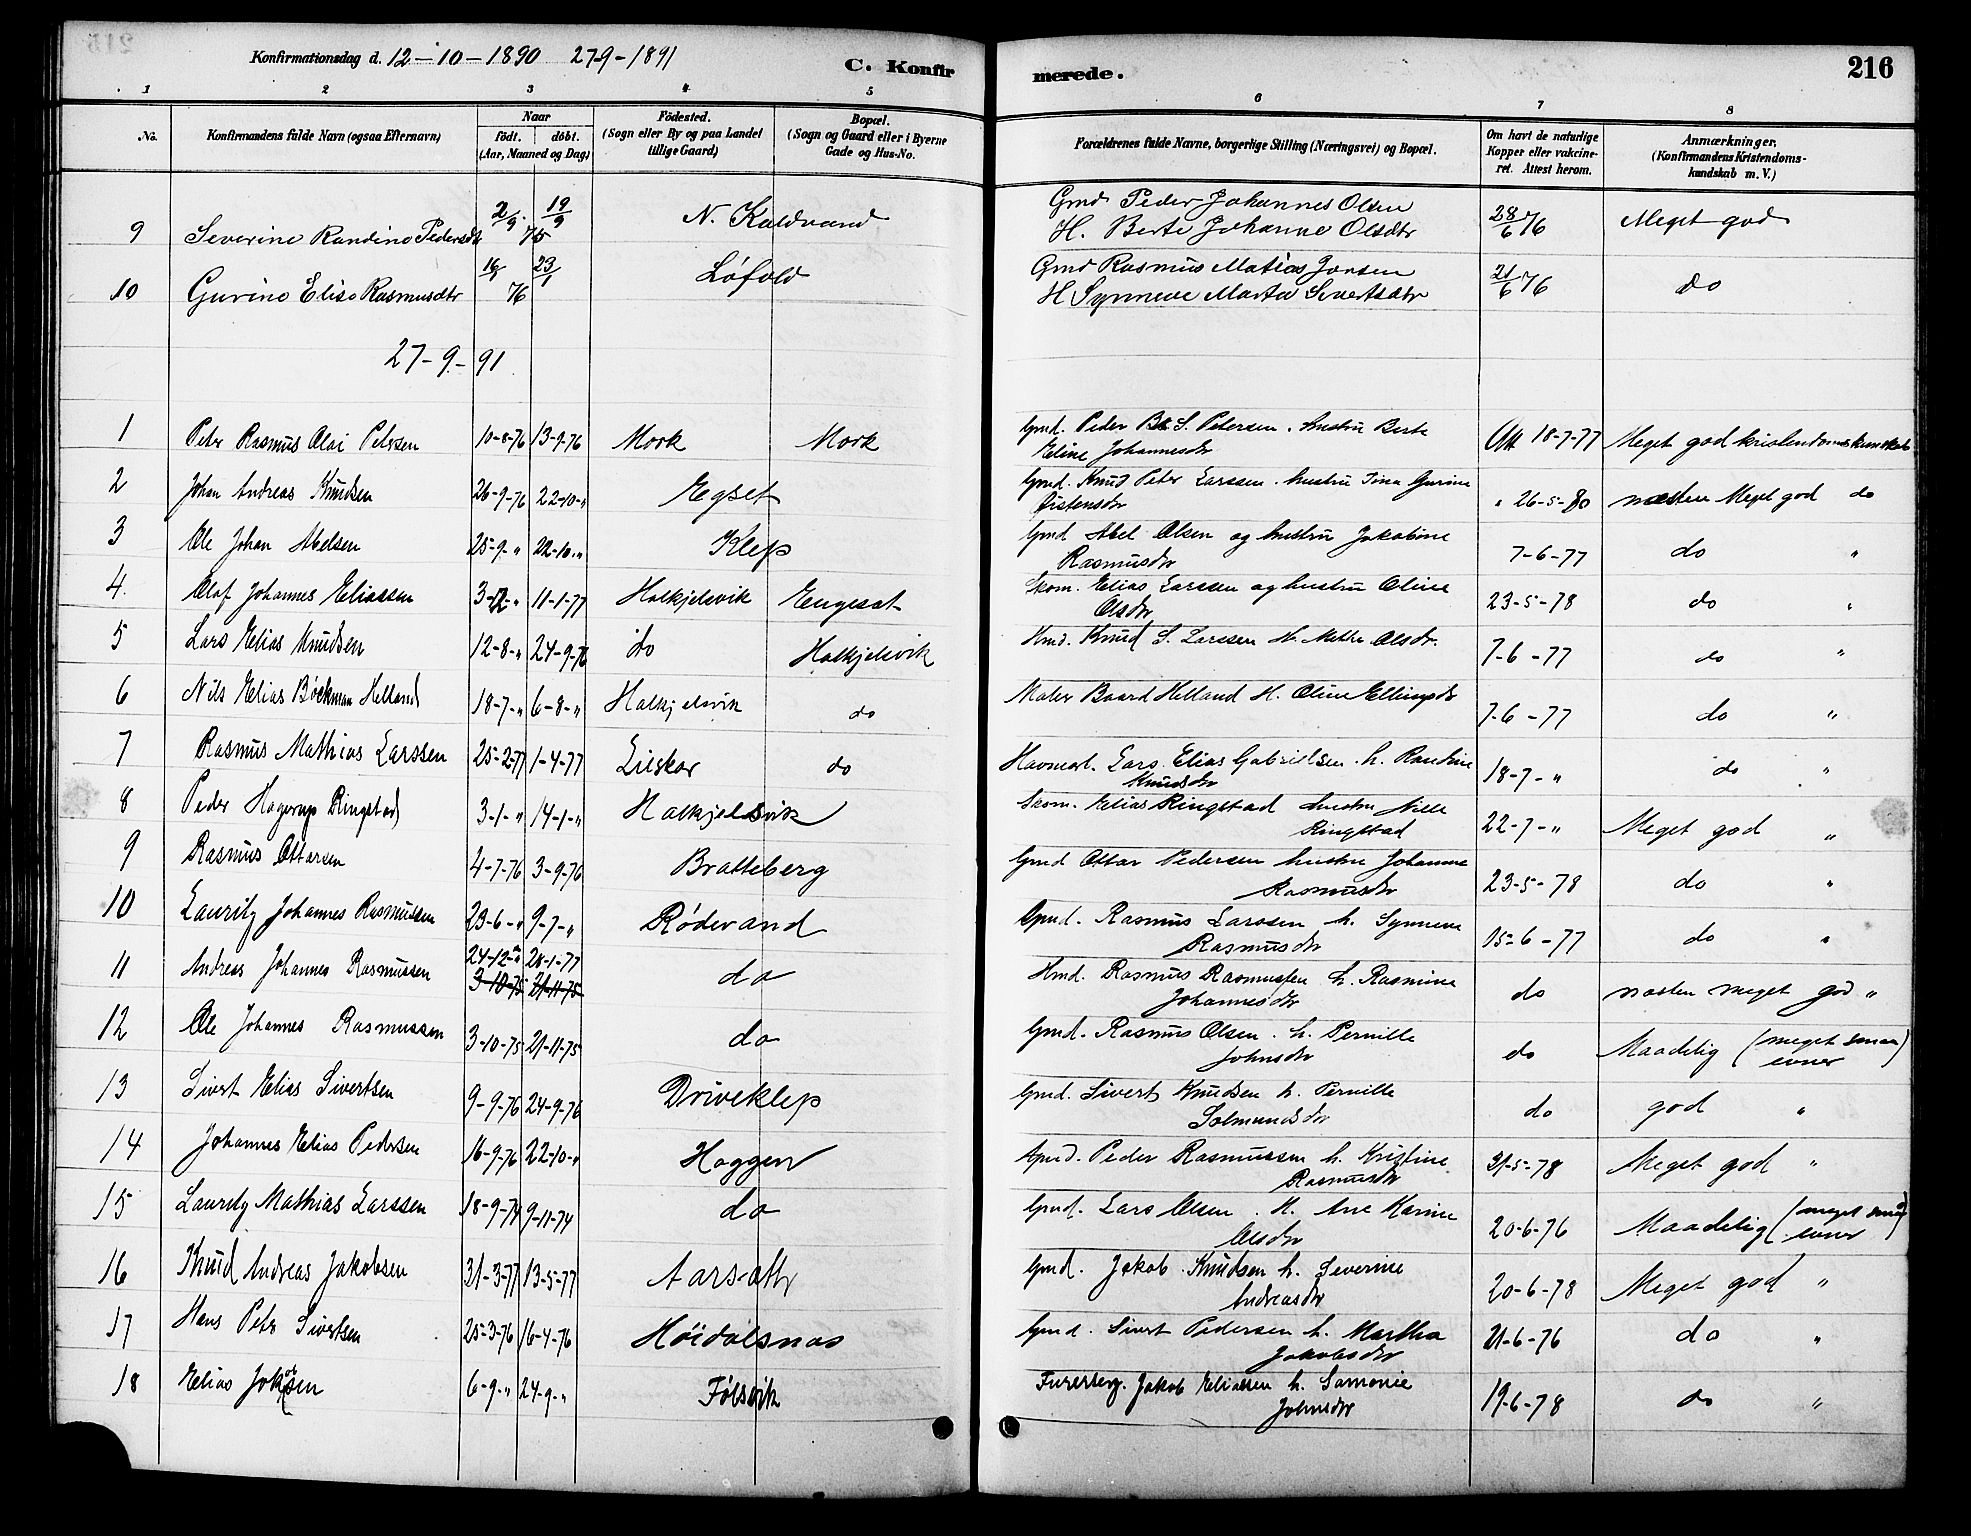 Konfirmationsdag d. 12-10-1890 27-9-1891
C. Konfirmerede.
216
1 2 3 4 5 6 7 8
No. Konfirmandens fulde Navn (ogsaa Efternavn) Naar födt. döbt. (Aar, Maaned og Dag) Födested. (Sogn eller By og paa Landet tillige Gaard) Bopæl. (Sogn og Gaard eller i Byerne Gade og Hus-No. Forældrenes fulde Navne, borgerlige Stilling (Næringsvei) og Bopæl. Om havt de naturlige Kopper eller vakcineret. Attest herom. Anmærkninger. (Konfirmandens Kristendomskundskab m. V.)
9 Severine Randine Pedersdtr 2/9 75 19/9 N. Kaldvand Gmd Peder Johannes Olsen
H. Berte Johanne Olsdtr 28/6 76 Meget god
10 Gurine Elise Rasmusdtr 16/1 76 23/1 Löfold Gmd Rasmus Matias Jonsen
H Synneve Marta Sivertsdtr 21/6 76 do
27-9-91
1 Peter Rasmus Olai Petersen 10-8-76 13-9-76 Mork Mork Gmd. Peder S. Petersen. hustru Berte
Eline Johannesdr Att 18-7-77 Meget god kristendomskundskab
2 Johan Andreas Knudsen 26-9-76 22-10-" Egset Gmd. Knud Peter Larssen. hustru Tina Gurine
Östensdr " 26-5-80 næsten Meget god do
3 Ole Johan Abelsen 25-9-" 22-10-" Klep Gmd Abel Olsen og hustru Jakobine
Rasmusdr 7-6-77 do "
4 Olaf Johannes Eliassen 3-12-" 11-1-77 Halkjelsvik Engeset Skom. Elias Larssen og hustru Oline
Olsdr 23-5-78 do "
5 Lars Elias Knudsen 12-8-" 24-9-76 do Halkjelsvik Hmd. Knud S. Larssen H. Mathe Olsdr. 7-6-77 do "
6 Nils Elias Böckman Helland 18-7-" 6-8-" Halkjelsvik do Maler Baard Helland H. Oline Ellingsdr 7-6-77 do "
7 Rasmus Mathias Larssen 25-2-77 1-4-77 Lilskar do Lars Elias Gabrielsen. h. Randine
Knudsdr 18-7-" do "
8 Peder Hagerup Ringstad 3-1-" 14-1-" Halkjelsvik Skom. Elias Ringstad hustru Nille
Ringstad 22-7-" Meget god "
9 Rasmus Ottarsen 4-7-76 3-9-76 Bratteberg Gmd Ottar Pedersen hustru Johanne
Rasmusdr 23-5-78 do "
10 Lauritz Johannes Rasmussen 23-6-" 9-7-" Rödevand Gmd. Rasmus Larssen h. Synneve
Rasmusdr 15-6-77 do "
11 Andreas Johannes Rasmussen 24-12-" 28-1-77
3-10-75 21-11-75 do Hmd. Rasmus Rasmussen h. Rasmine
Johannesdr do næsten meget god "
12 Ole Johannes Rasmussen 3-10-75 21-11-75 do Gmd. Rasmus Olsen. h. Pernille
Johnsdr do Maadelig (meget smaa evner)
13 Sivert Elias Sivertsen 9-9-76 24-9-76 Driveklep Gmd. Sivert Knudsen h. Pernille
Salmundsdr do god "
14 Johannes Elias Pedersen 16-9-76 22-10-" Haggen Gmd. Peder Rasmussen h. Kristine
Rasmusdr 31-5-78 Meget god "
15 Lauritz Mathias Larssen 18-9-74 9-11-74 do Gmd. Lars Olsen. H. Ane Karine
Olsdr 20-6-76 Maadelig (meget smaa evner)
16 Knud Andreas Jakobsen 31-3-77 13-5-77 Aarsæth Gmd. Jakob Knudsen h. Severine
Andreasdr 20-6-78 Meget god "
17 Hans Petr Sivertsen 25-3-76 16-4-76 Höidalsnæs Gmd. Sivert Pedersen h. Martha
Jakobsdr 21-6-76 do "
18 Elias Jakobsen 6-9-" 24-9-" Fölsvik Jakob Eliassen h. Samonie
Johnsdr 19-6-78 do "